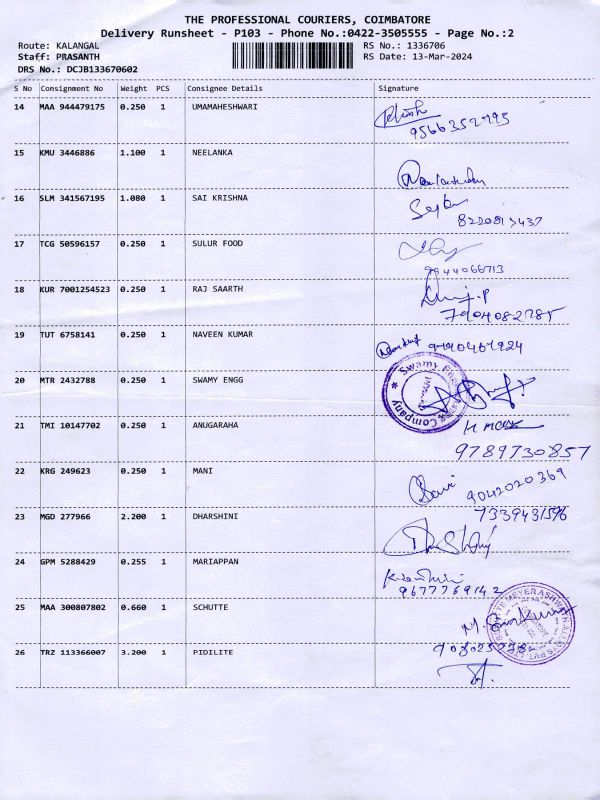 THE PROFESSIONAL COURIERS, COIMBATORE
Delivery Runsheet - P103 - Phone No.:0422-3505555 - Page No.:2
Route: KALANGAL RS No.: 1336706
Staff: PRASANTH RS Date: 13-Mar-2024
DRS No.: DCJB133670602
S No Consignment No Weight PCS Consignee Details Signature
14 MAA 944479175 0.250 1 UMAMAHESHWARI
15 KMU 3446886 1.100 1 NEELANKA
16 SLM 341567195 1.080 1 SAI KRISHNA
17 TCG 50596157 0.250 1 SULUR FOOD
9944066713
18 KUR 7001254523 0.250 1 RAJ SAARTH
7904082785
19 TUT 6758141 0.250 1 NAVEEN KUMAR
20 MTR 2432788 0.250 1 SWAMY ENGG
Swamy Company
21 TMI 10147702 0.250 1 ANUGARAHA
9789730857
22 KRG 249623 0.250 1 MANI
9042020369
23 MGD 277966 2.200 1 DHARSHINI
24 GPM 5288429 0.255 1 MARIAPPAN
9677769142
25 MAA 300807802 0.660 1 SCHUTTE
26 TRZ 113366007 3.200 1 PIDILITE